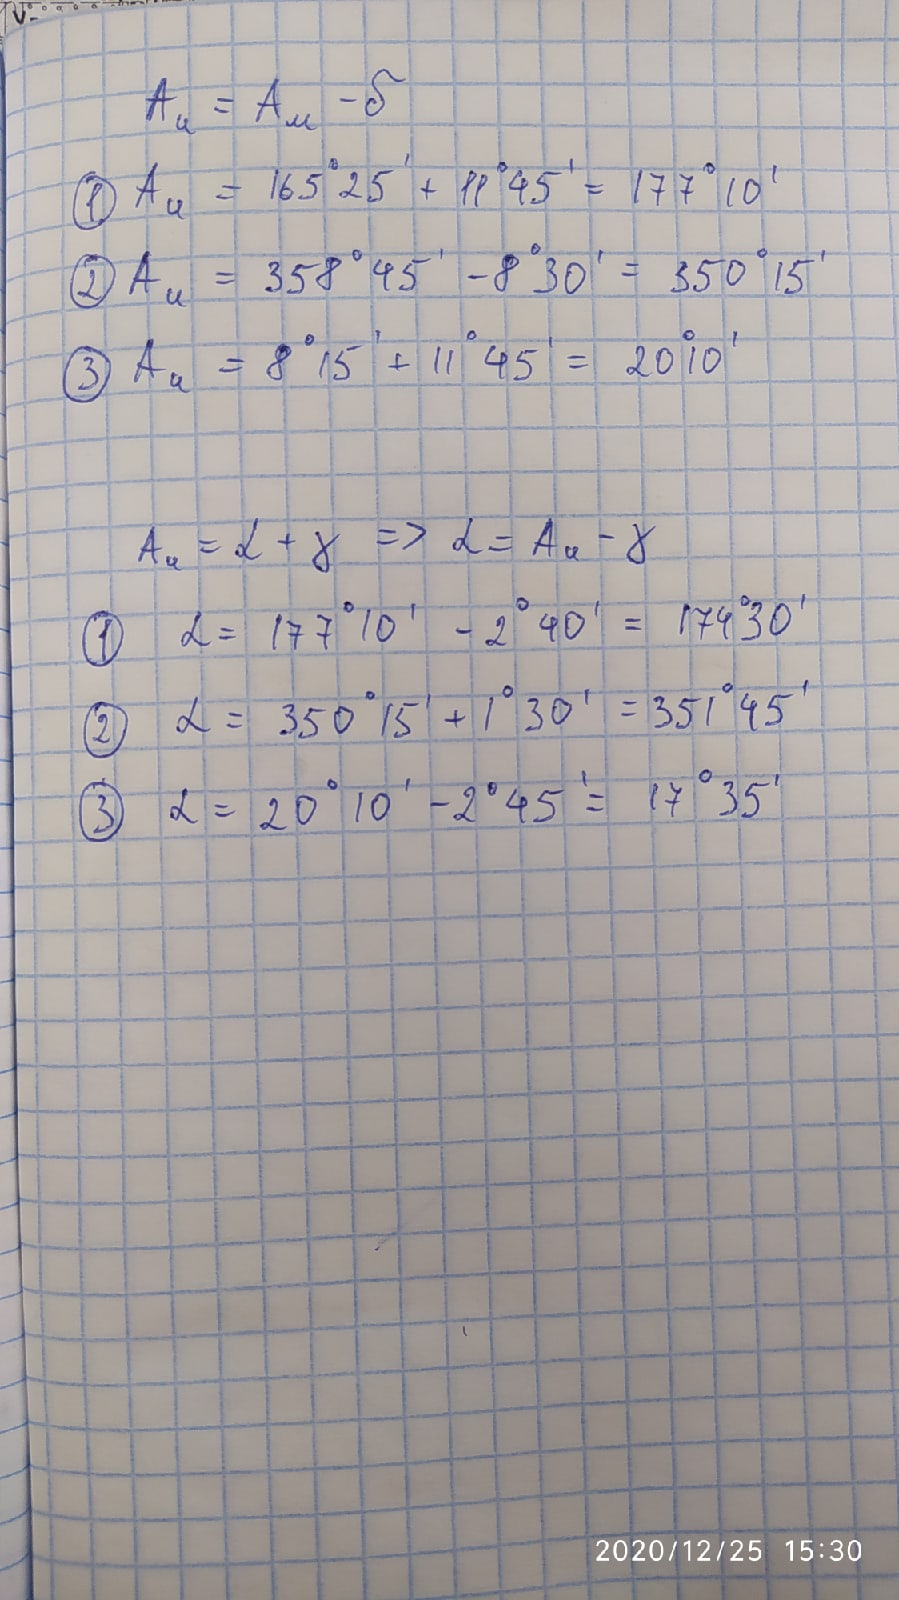 Aи = Aм - δ
① Aи = 165°25' + 11°45' = 177°10'
② Aи = 358°45' - 8°30' = 350°15'
③ Aи = 8°15' + 11°45' = 20°10'
Aи = α + γ => α = Aи - γ
① α = 177°10' - 2°40' = 174°30'
② α = 350°15' + 1°30' = 351°45'
③ α = 20°10' - 2°45' = 17°35'
2020/12/25 15:30